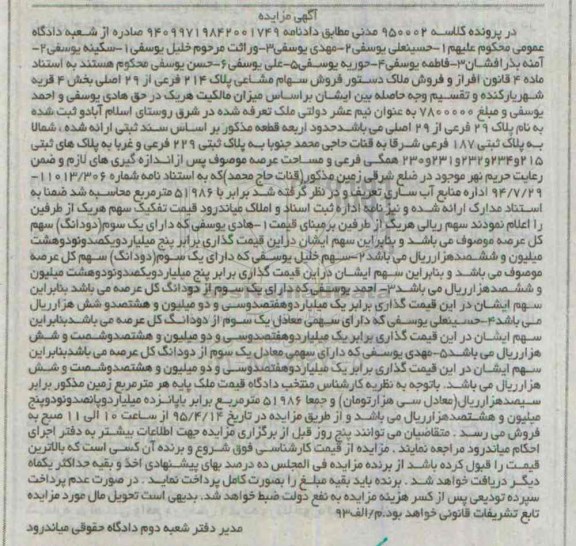 آگهی مزایده
در پرونده کلاسه ۹۵۰۰۰۲ مدنی مطابق دادنامه ۹۴۰۹۹۷۱۹۸۴۲۰۰۱۷۴۹ صادره از شعبه دادگاه
عمومی محکوم علیهم۱-حسینعلی یوسفی۲-مهدی یوسفی۳-وراثت مرحوم خلیل یوسفی۱-سکینه یوسفی۲-
آمنه بذرافشان۳-فاطمه یوسفی۴-حوریه یوسفی۵-علی یوسفی۶-حسن یوسفی محکوم هستند به استناد
ماده ۴ قانون افراز و فروش ملاک دستور فروش سهام مشاعی پلاک ۲۱۴ فرعی از ۲۹ اصلی بخش ۴ قریه
شهریارکنده و تقسیم وجه حاصله بین ایشان براساس میزان مالکیت هریک در حق هادی یوسفی و احمد
یوسفی و مبلغ ۷۸۰۰۰۰۰ به عنوان نیم عشر دولتی ملک تعرفه شده در شرق روستای اسلام آبادو ثبت شده
به نام پلاک ۲۹ فرعی از ۲۹ اصلی می باشدحدود اربعه قطعه مذکور بر اساس سند ثبتی ارائه شده ، شمالا
به پلاک ثبتی ۱۸۷ فرعی شرقا به قنات حاجی محمد جنوبا به پلاک ثبتی ۲۲۹ فرعی و غربا به پلاک های ثبتی
۲۱۵و۲۳۴و۲۳۲و۲۳۱و۲۳۰ همگی فرعی و مساحت عرصه موصوف پس از اندازه گیری های لازم و ضمن
رعایت حریم نهر موجود در ضلع شرقی زمین مذکور(قنات حاج محمد)که به استناد نامه شماره ۱۱۰۱۳/۳۰۶-
۹۴/۷/۲۹ اداره منابع آب ساری تعریف و در نظر گرفته شد برابر با ۵۱۹۸۶ مترمربع محاسبه شد ضمنا به
استناد مدارک ارائه شده و نیز نامه اداره ثبت اسناد و املاک میاندرود قیمت تفکیک سهم هریک از طرفین
را اعلام نمودند سهم ریالی هریک از طرفین برمبنای قیمت ۱-هادی یوسفی که دارای یک سوم(دودانگ) سهم
کل عرصه موصوف می باشد و بنابراین سهم ایشان دراین قیمت گذاری برابر پنج میلیاردویکصدونودوهشت
میلیون و ششصدهزارریال می باشد۲-سهم خلیل یوسفی که دارای یک سوم(دودانگ) سهم کل عرصه
موصوف می باشد و بنابراین سهم ایشان دراین قیمت گذاری برابر پنج میلیاردویکصدونودوهشت میلیون
و ششصدهزارریال می باشد۳- احمد یوسفی که دارای یک سوم از دودانگ کل عرصه می باشد بنابراین
سهم ایشان در این قیمت گذاری برابر یک میلیاردوهفتصدوسی و دو میلیون و هشتصدو شش هزارریال
می باشد۴-حسینعلی یوسفی که دارای سهمی معادل یک سوم از دودانگ کل عرصه می باشدبنابراین
سهم ایشان در این قیمت گذاری برابر یک میلیاردوهفتصدوسی و دو میلیون و هشتصدوشصت و شش
هزارریال می باشد۵-مهدی یوسفی که دارای سهمی معادل یک سوم از دودانگ کل عرصه می باشدبنابراین
سهم ایشان در این قیمت گذاری برابر یک میلیاردوهفتصدوسی و دو میلیون و هشتصدوشصت و شش
هزارریال می باشد. باتوجه به نظریه کارشناس منتخب دادگاه قیمت ملک پایه هر مترمربع زمین مذکور برابر
سیصدهزارریال(معادل سی هزارتومان) و جمعا ۵۱۹۸۶ مترمربع برابر باپانزده میلیاردوپانصدونودوپنج
میلیون و هشتصدهزارریال می باشد و از طریق مزایده در تاریخ ۹۵/۴/۱۴ از ساعت ۱۰ الی ۱۱ صبح به
فروش می رسد . متقاضیان می توانند پنج روز قبل از برگزاری مزایده جهت اطلاعات بیشتر به دفتر اجرای
احکام میاندرود مراجعه نمایند . مزایده از قیمت کارشناسی فوق شروع و برنده آن کسی است که بالاترین
قیمت را قبول کرده باشد از برنده مزایده فی المجلس ده درصد بهای پیشنهادی اخذ و بقیه حداکثر یکماه
دیگر دریافت خواهد شد . برنده باید بقیه مبلغ را بصورت کامل پرداخت نماید . در صورت عدم پرداخت
سپرده تودیعی پس از کسر هزینه مزایده به نفع دولت ضبط خواهد شد. بدیهی است تحویل مال مورد مزایده
تابع تشریفات قانونی خواهد بود.م/الف۹۳
مدیر دفتر شعبه دوم دادگاه حقوقی میاندرود